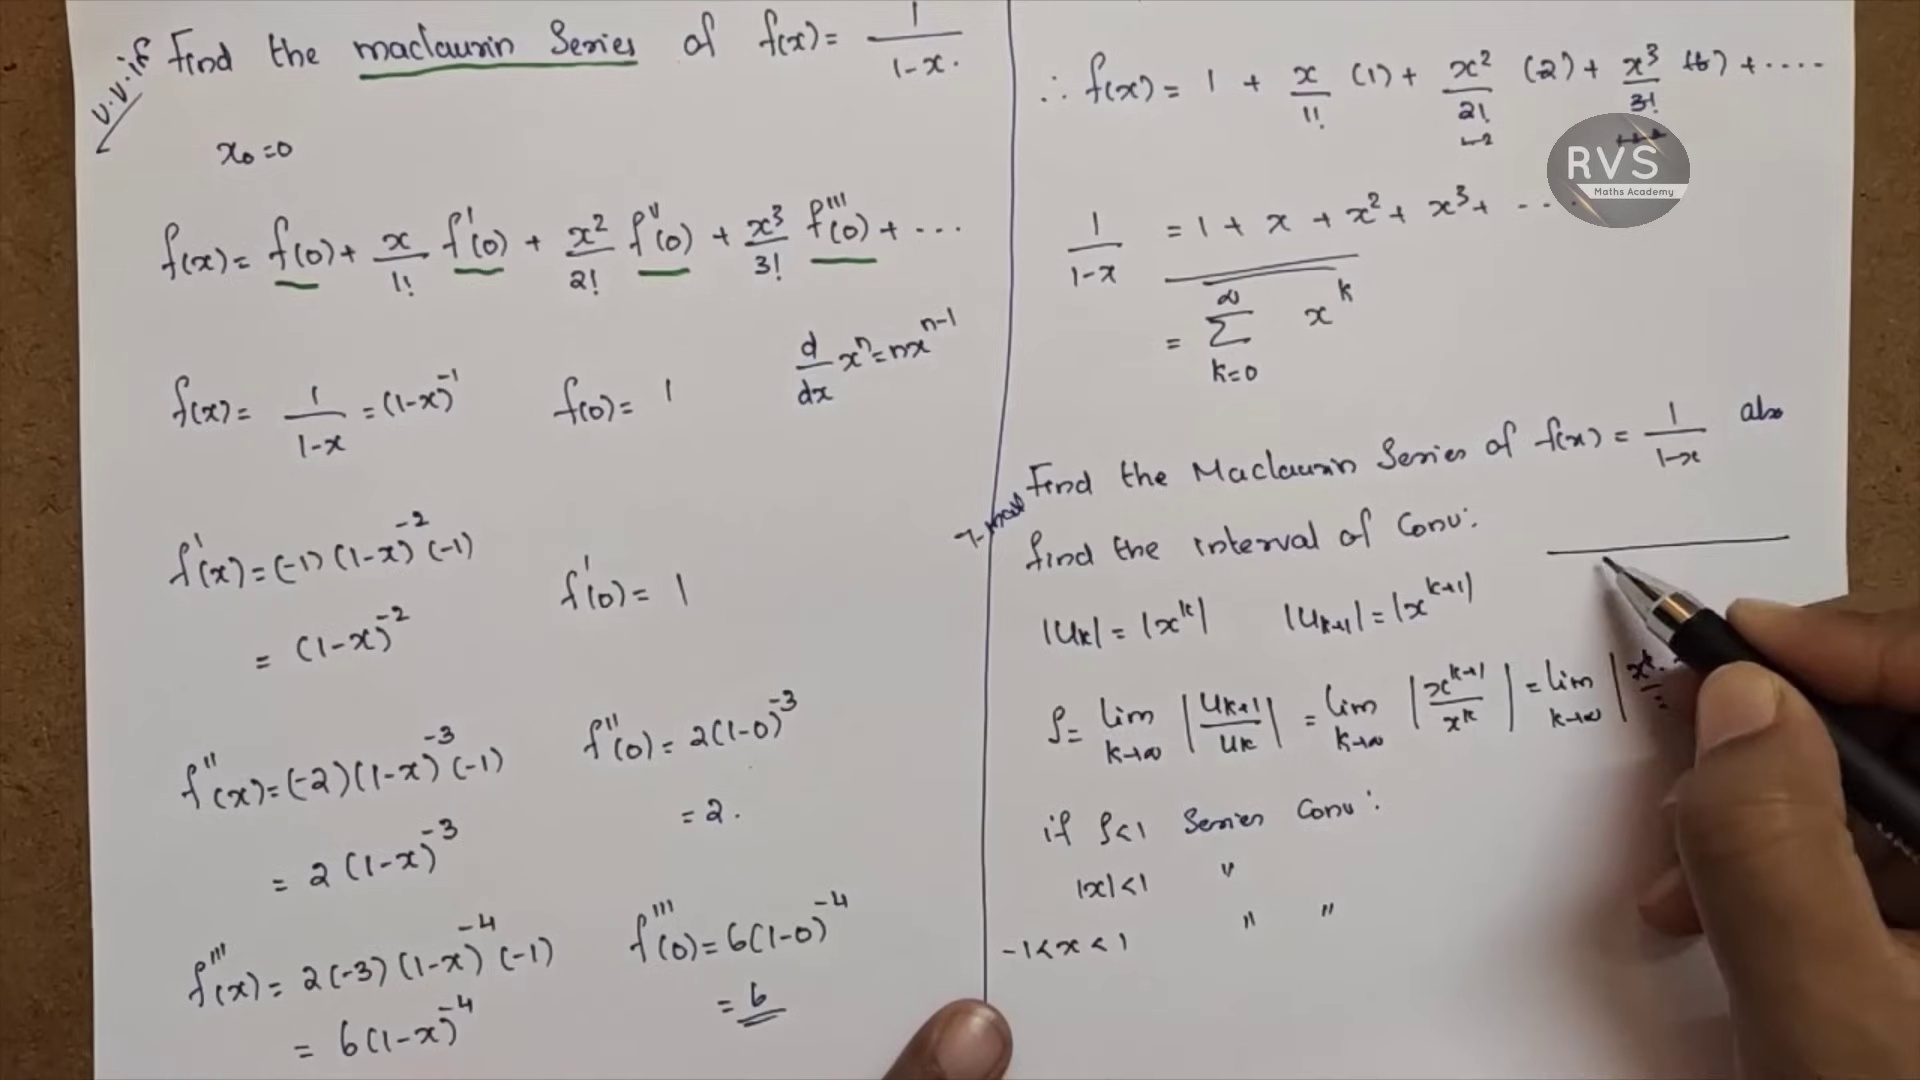 v.v.if
Find the maclaurin Series of f(x) = 1/1-x.
x₀=0
f(x) = f(0) + x/1! f'(0) + x²/2! f''(0) + x³/3! f'''(0) + ...
d/dx xⁿ = nxⁿ⁻¹
f(x) = 1/1-x = (1-x)⁻¹ f(0) = 1
f'(x) = (-1)(1-x)⁻²(-1)
= (1-x)⁻² f'(0) = 1
f''(x) = (-2)(1-x)⁻³(-1) f''(0) = 2(1-0)⁻³
= 2(1-x)⁻³ = 2.
f'''(x) = 2(-3)(1-x)⁻⁴(-1) f'''(0) = 6(1-0)⁻⁴
= 6(1-x)⁻⁴ = 6
∴ f(x) = 1 + x/1! (1) + x²/2! (2) + x³/3! (6) + ....
RVS
Maths Academy
1/1-x = 1 + x + x² + x³ + ...
= ∞ Σ k=0 xᵏ
Find the Maclaurin Series of f(x) = 1/1-x also
find the interval of Conv:
|Uₖ| = |xᵏ| |Uₖ₊₁| = |xᵏ⁺¹|
ρ = lim k→∞ |Uₖ₊₁/Uₖ| = lim k→∞ |xᵏ⁺¹/xᵏ| = lim k→∞ |xᵏ.
if ρ<1 Series Conv:
|x|<1 "
-1<x<1 " "